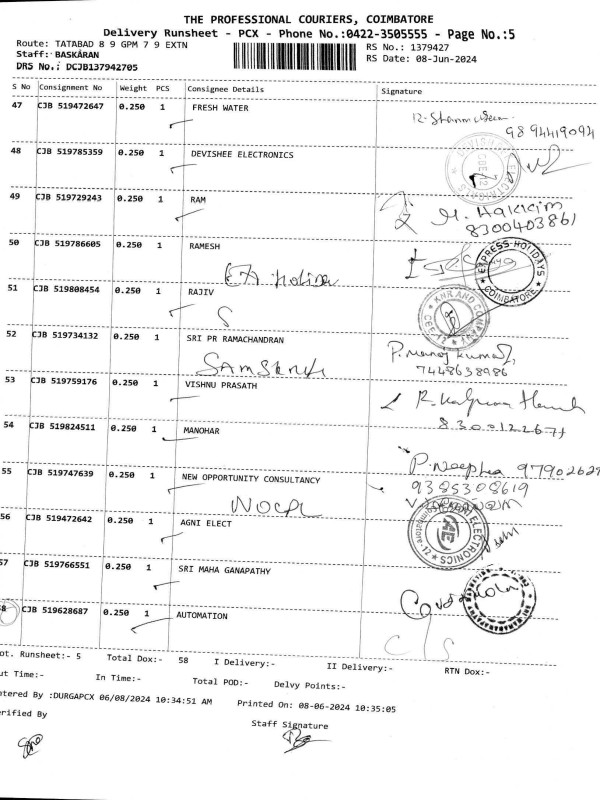 THE PROFESSIONAL COURIERS, COIMBATORE
Delivery Runsheet - PCX - Phone No.:0422-3505555 - Page No.:5
Route: TATABAD 8 9 GPM 7 9 EXTN
RS No.: 1379427
Staff: BASKARAN
RS Date: 08-Jun-2024
DRS No.: DCJB137942705
S No Consignment No Weight PCS Consignee Details Signature
47 CJB 519472647 0.250 1 FRESH WATER
9894419094
48 CJB 519785359 0.250 1 DEVISHEE ELECTRONICS
49 CJB 519729243 0.250 1 RAM M. Hakkim
8300403861
50 CJB 519786605 0.250 1 RAMESH
EXPRESS HOLIDAYS COIMBATORE
51 CJB 519808454 0.250 1 RAJIV
KHR AND COMPANY CBE-12
52 CJB 519734132 0.250 1 SRI PR RAMACHANDRAN
P. Manoj Kumar,
7448638986
53 CJB 519759176 0.250 1 VISHNU PRASATH
54 CJB 519824511 0.250 1 MANOHAR
55 CJB 519747639 0.250 1 NEW OPPORTUNITY CONSULTANCY
9385308619
NOCPL
56 CJB 519472642 0.250 1 AGNI ELECT
ELECTRONICS
57 CJB 519766551 0.250 1 SRI MAHA GANAPATHY
58 CJB 519628687 0.250 1 AUTOMATION
ot. Runsheet:- 5 Total Dox:- 58 I Delivery:- II Delivery:- RTN Dox:-
ut Time:- In Time:- Total POD:- Delvy Points:-
ntered By :DURGAPCX 06/08/2024 10:34:51 AM Printed On: 08-06-2024 10:35:05
erified By Staff Signature